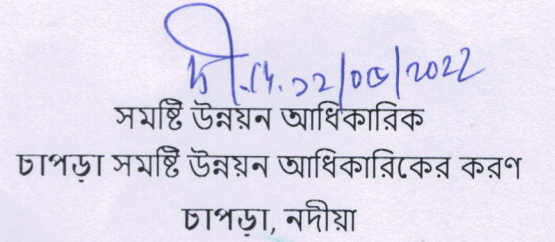 ১২/০৫/2022
সমষ্টি উন্নয়ন আধিকারিক
চাপড়া সমষ্টি উন্নয়ন আধিকারিকের করণ
চাপড়া, নদীয়া